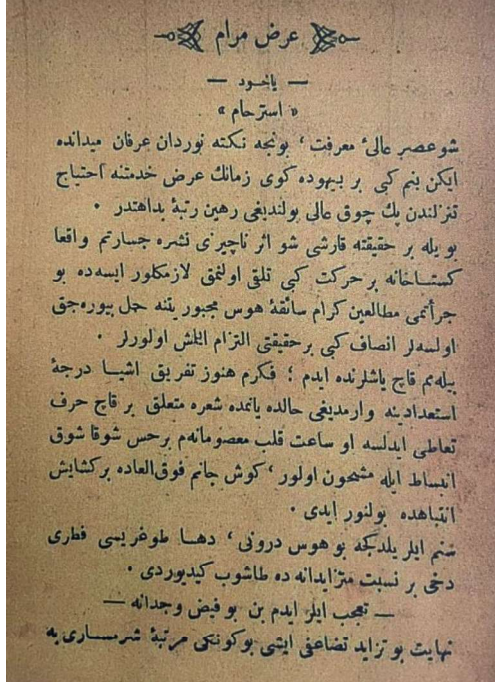 عرض مرام
— ياخود —
« استرحام »
شو عصر عالئ معرفت ، بونجه نكته نوردان عرفان ميدانده
ايكن بنم كبى بر بيهوده كوى زمانك عرض خدمتنه احتياج
تنزلندن پك چوق عالى بولنديغى رهين رتبۀ بداهتدر .
بويله بر حقيقته قارشى شو اثر ناچيزى نشره جسارتم واقعا
كستاخانه بر حركت كبى تلقى اولنمق لازمكلور ايسه‌ده بو
جرأتمى مطالعين كرام سائقۀ هوس مجبوريتنه حمل بيوره‌جق
اولسه‌لر انصاف كبى بر حقيقتى التزام ايلمش اولورلر .
بيله‌م قاچ ياشلرنده ايدم ؛ فكرم هنوز تفريق اشيا درجۀ
استعدادينه وارمديغى حالده يانمده شعره متعلق بر قاچ حرف
تعاطى ايدلسه او ساعت قلب معصومانه‌م بر حس شوقا شوق
انبساط ايله مشحون اولور ، كوش جانم فوق‌العاده بر كشايش
انتباهده بولنور ايدى .
سنم ايلريلدكجه بو هوس درونى ، دها طوغريسى فطرى
دخى بر نسبت متزايدانه ده طاشوب كيديوردى .
— تعجب ايلر ايدم بن بو فيض وجدانه —
نهايت بو تزايد تضاعفى ايشى بوكونكى مرتبۀ شرمسارى يه